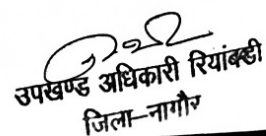 उपखण्ड अधिकारी रियांबडी
जिला–नागौर